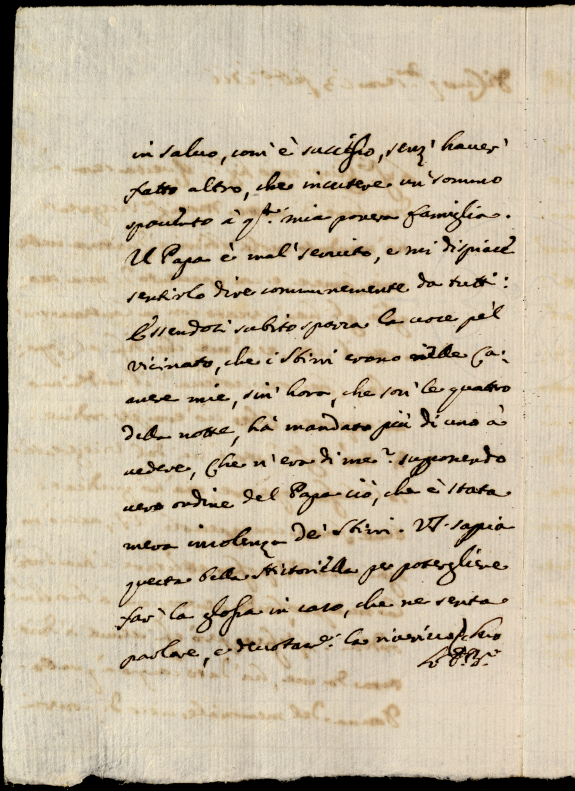 in saluo, com' è successo, senz' hauer'
fatto altro, che incutere un' sommo
spauento à q.ta mia pouera famiglia.
Il Papa è mal' seruito, e mi dispiace
sentirlo dire communemente da tutti:
Essendosi subito sparsa la uoce pe'l
vicinato, che i Sbirri erano nelle Ca:
mere mie, sin' hora, che son' le quattro
della notte, hà mandato più di uno à
uedere, che n' era di me: supponendo
uero ordine del Papa ciò, che è stata
mera insolenza de' Sbirri. V.S. sappia
questa bella Historiella per potergliene
far' la glossa in caso, che ne senta
parlare, e deuotam.te la riuerisco